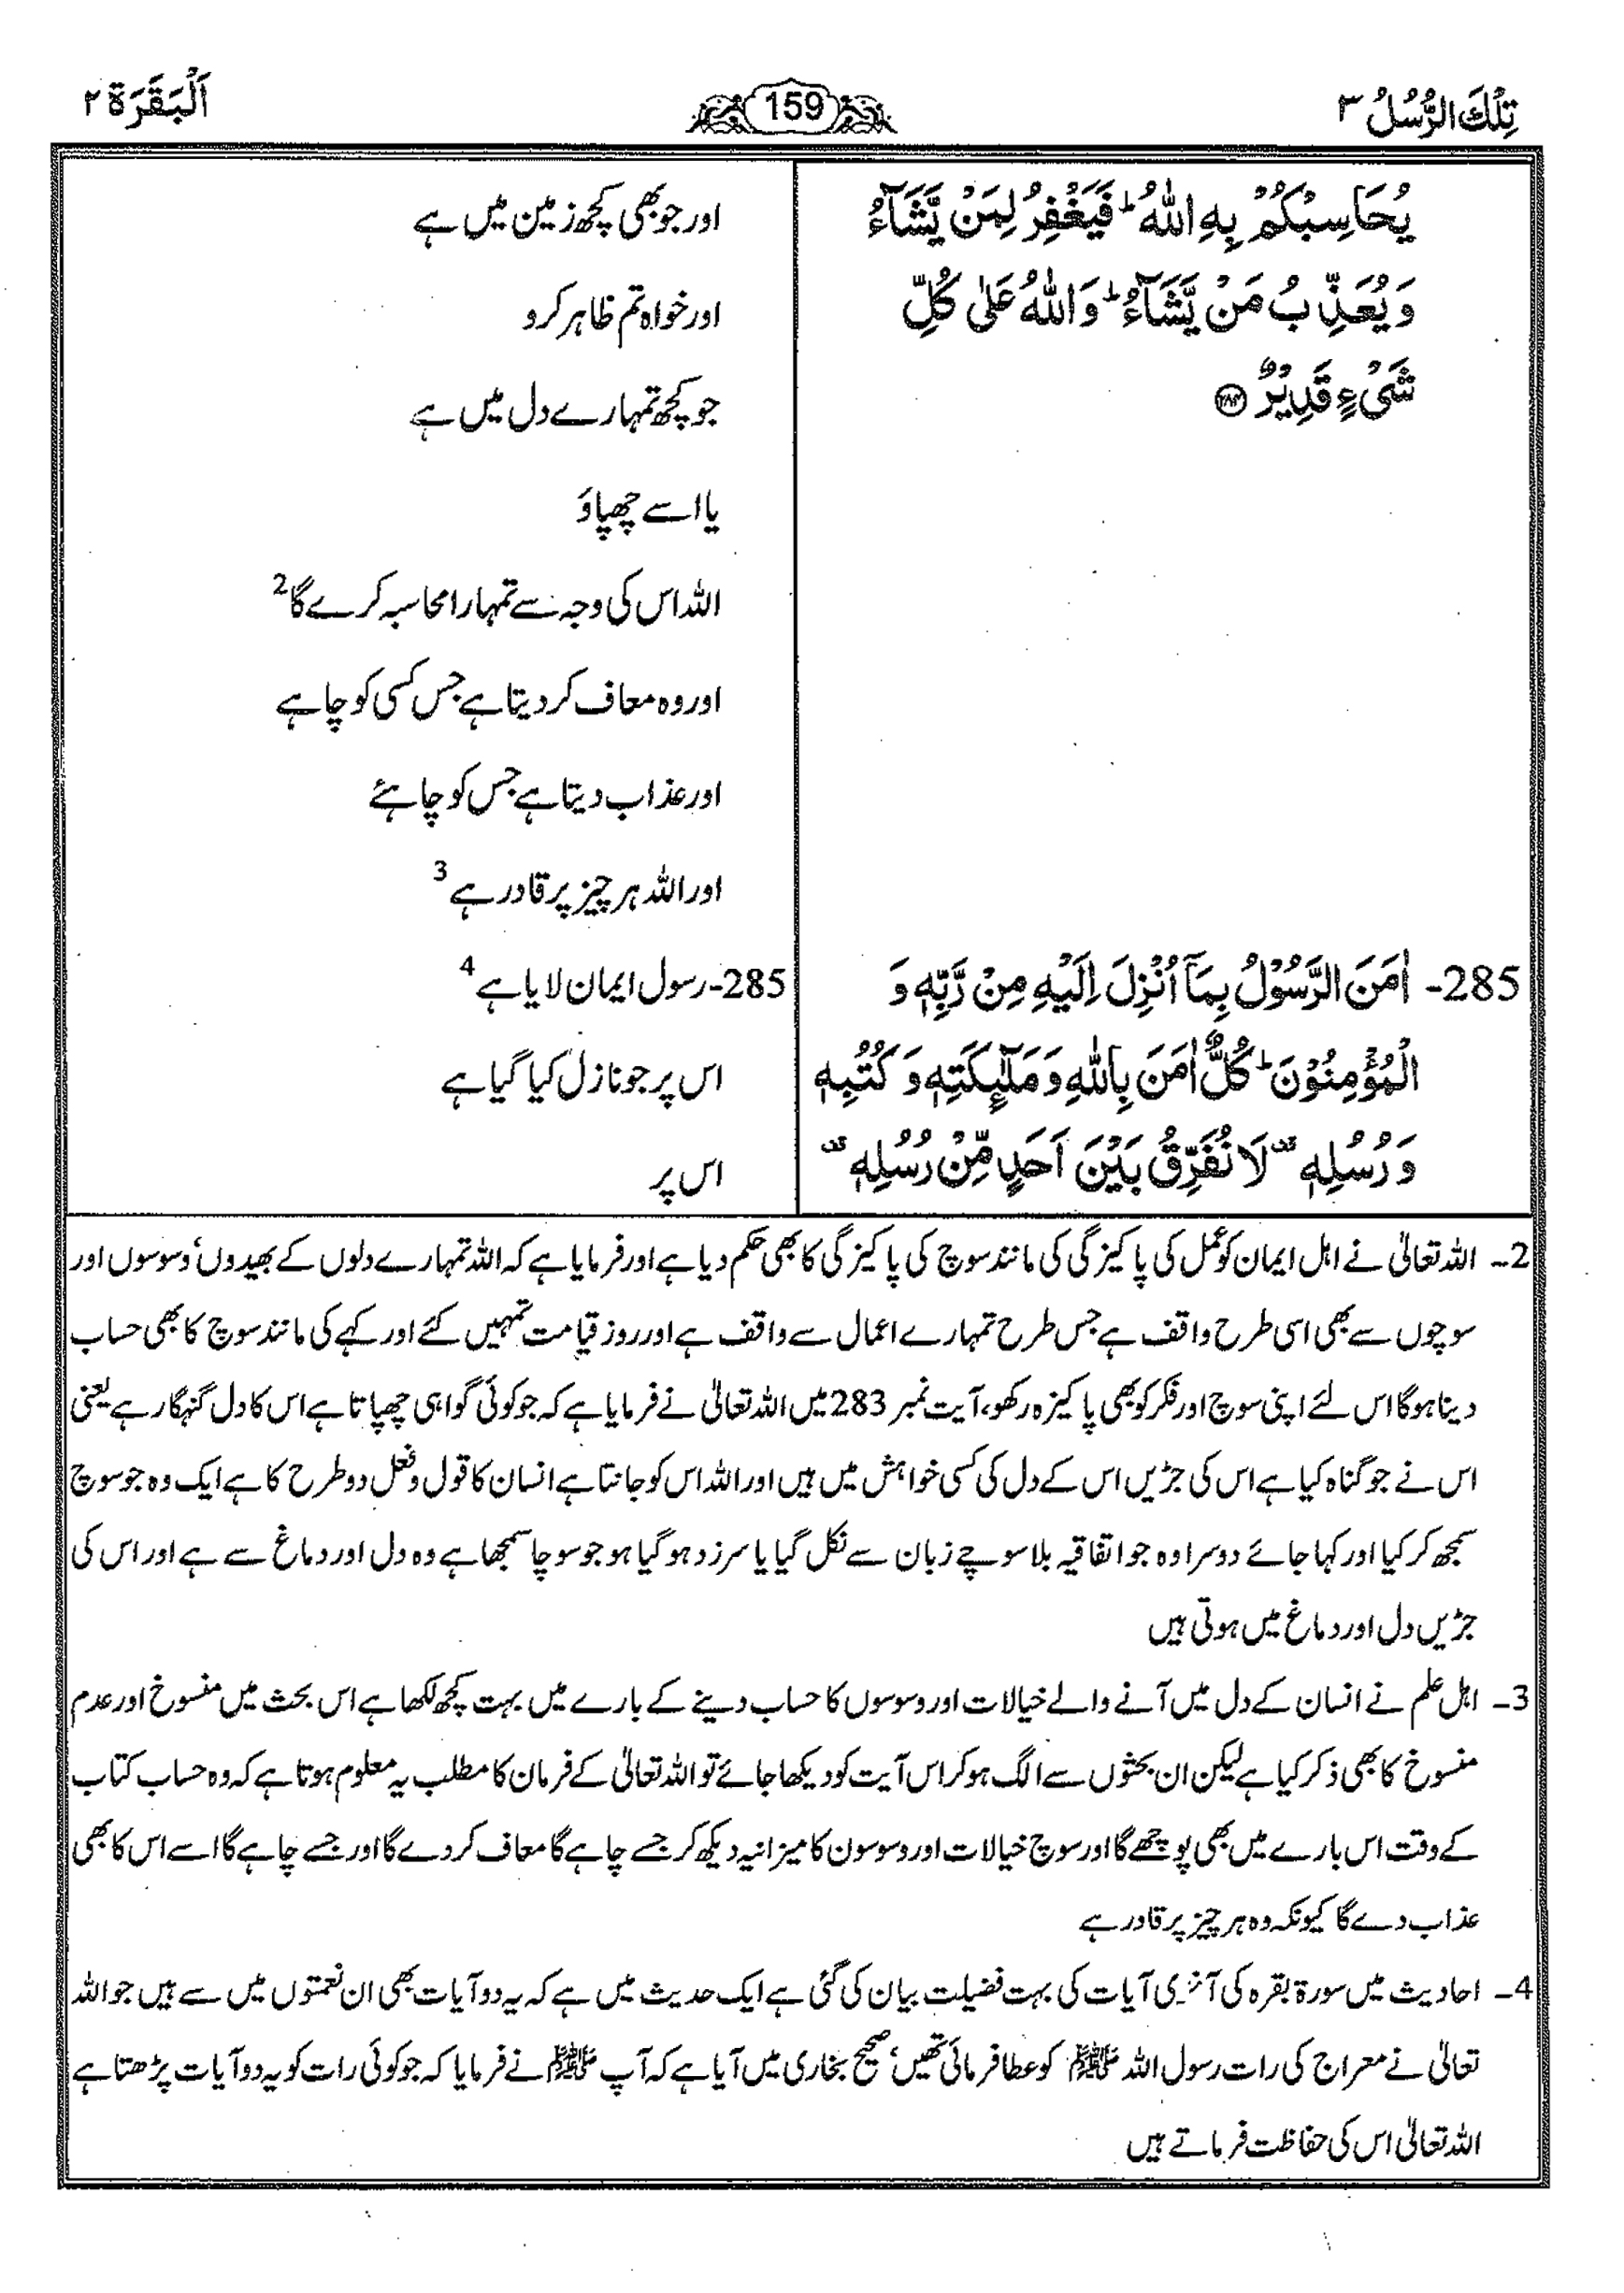 تِلْكَ الرُّسُلُ ۳
159
اَلْبَقَرَة ۲
يُحَاسِبْكُمْ بِهِ اللّٰهُ ؕ فَيَغْفِرُ لِمَنْ يَّشَآءُ
وَيُعَذِّبُ مَنْ يَّشَآءُ ؕ وَاللّٰهُ عَلٰى كُلِّ
شَىْءٍ قَدِيْرٌ ﴿۲۸۴﴾
285- اٰمَنَ الرَّسُوْلُ بِمَاۤ اُنْزِلَ اِلَيْهِ مِنْ رَّبِّهٖ وَ
الْمُؤْمِنُوْنَ ؕ كُلٌّ اٰمَنَ بِاللّٰهِ وَمَلٰٓئِكَتِهٖ وَكُتُبِهٖ
وَرُسُلِهٖ ۟ لَا نُفَرِّقُ بَيْنَ اَحَدٍ مِّنْ رُّسُلِهٖ ۟
اور جو بھی کچھ زمین میں ہے
اور خواہ تم ظاہر کرو
جو کچھ تمہارے دل میں ہے
یا اسے چھپاؤ
اللہ اس کی وجہ سے تمہارا محاسبہ کرے گا 2
اور وہ معاف کر دیتا ہے جس کسی کو چاہے
اور عذاب دیتا ہے جس کو چاہئے
اور اللہ ہر چیز پر قادر ہے 3
285- رسول ایمان لایا ہے 4
اس پر جو نازل کیا گیا ہے
اس پر
2- اللہ تعالیٰ نے اہل ایمان کو عمل کی پاکیزگی کی مانند سوچ کی پاکیزگی کا بھی حکم دیا ہے اور فرمایا ہے کہ اللہ تمہارے دلوں کے بھیدوں، وسوسوں اور
سوچوں سے بھی اسی طرح واقف ہے جس طرح تمہارے اعمال سے واقف ہے اور روز قیامت تمہیں کئے اور کہے کی مانند سوچ کا بھی حساب
دینا ہوگا اس لئے اپنی سوچ اور فکر کو بھی پاکیزہ رکھو، آیت نمبر 283 میں اللہ تعالیٰ نے فرمایا ہے کہ جو کوئی گواہی چھپاتا ہے اس کا دل گنہگار ہے یعنی
اس نے جو گناہ کیا ہے اس کی جڑیں اس کے دل کی کسی خواہش میں ہیں اور اللہ اس کو جانتا ہے انسان کا قول و فعل دو طرح کا ہے ایک وہ جو سوچ
سمجھ کر کیا اور کہا جائے دوسرا وہ جو اتفاقیہ بلا سوچے زبان سے نکل گیا یا سرزد ہو گیا ہو جو سوچا سمجھا ہے وہ دل اور دماغ سے ہے اور اس کی
جڑیں دل اور دماغ میں ہوتی ہیں
3- اہل علم نے انسان کے دل میں آنے والے خیالات اور وسوسوں کا حساب دینے کے بارے میں بہت کچھ لکھا ہے اس بحث میں منسوخ اور عدم
منسوخ کا بھی ذکر کیا ہے لیکن ان بحثوں سے الگ ہو کر اس آیت کو دیکھا جائے تو اللہ تعالیٰ کے فرمان کا مطلب یہ معلوم ہوتا ہے کہ وہ حساب کتاب
کے وقت اس بارے میں بھی پوچھے گا اور سوچ خیالات اور وسوسوں کا میزانیہ دیکھ کر جسے چاہے گا معاف کر دے گا اور جسے چاہے گا اسے اس کا بھی
عذاب دے گا کیونکہ وہ ہر چیز پر قادر ہے
4- احادیث میں سورۃ بقرہ کی آخری آیات کی بہت فضیلت بیان کی گئی ہے ایک حدیث میں ہے کہ یہ دو آیات بھی ان نعمتوں میں سے ہیں جو اللہ
تعالیٰ نے معراج کی رات رسول اللہ ﷺ کو عطا فرمائی تھیں، صحیح بخاری میں آیا ہے کہ آپ ﷺ نے فرمایا کہ جو کوئی رات کو یہ دو آیات پڑھتا ہے
اللہ تعالیٰ اس کی حفاظت فرماتے ہیں